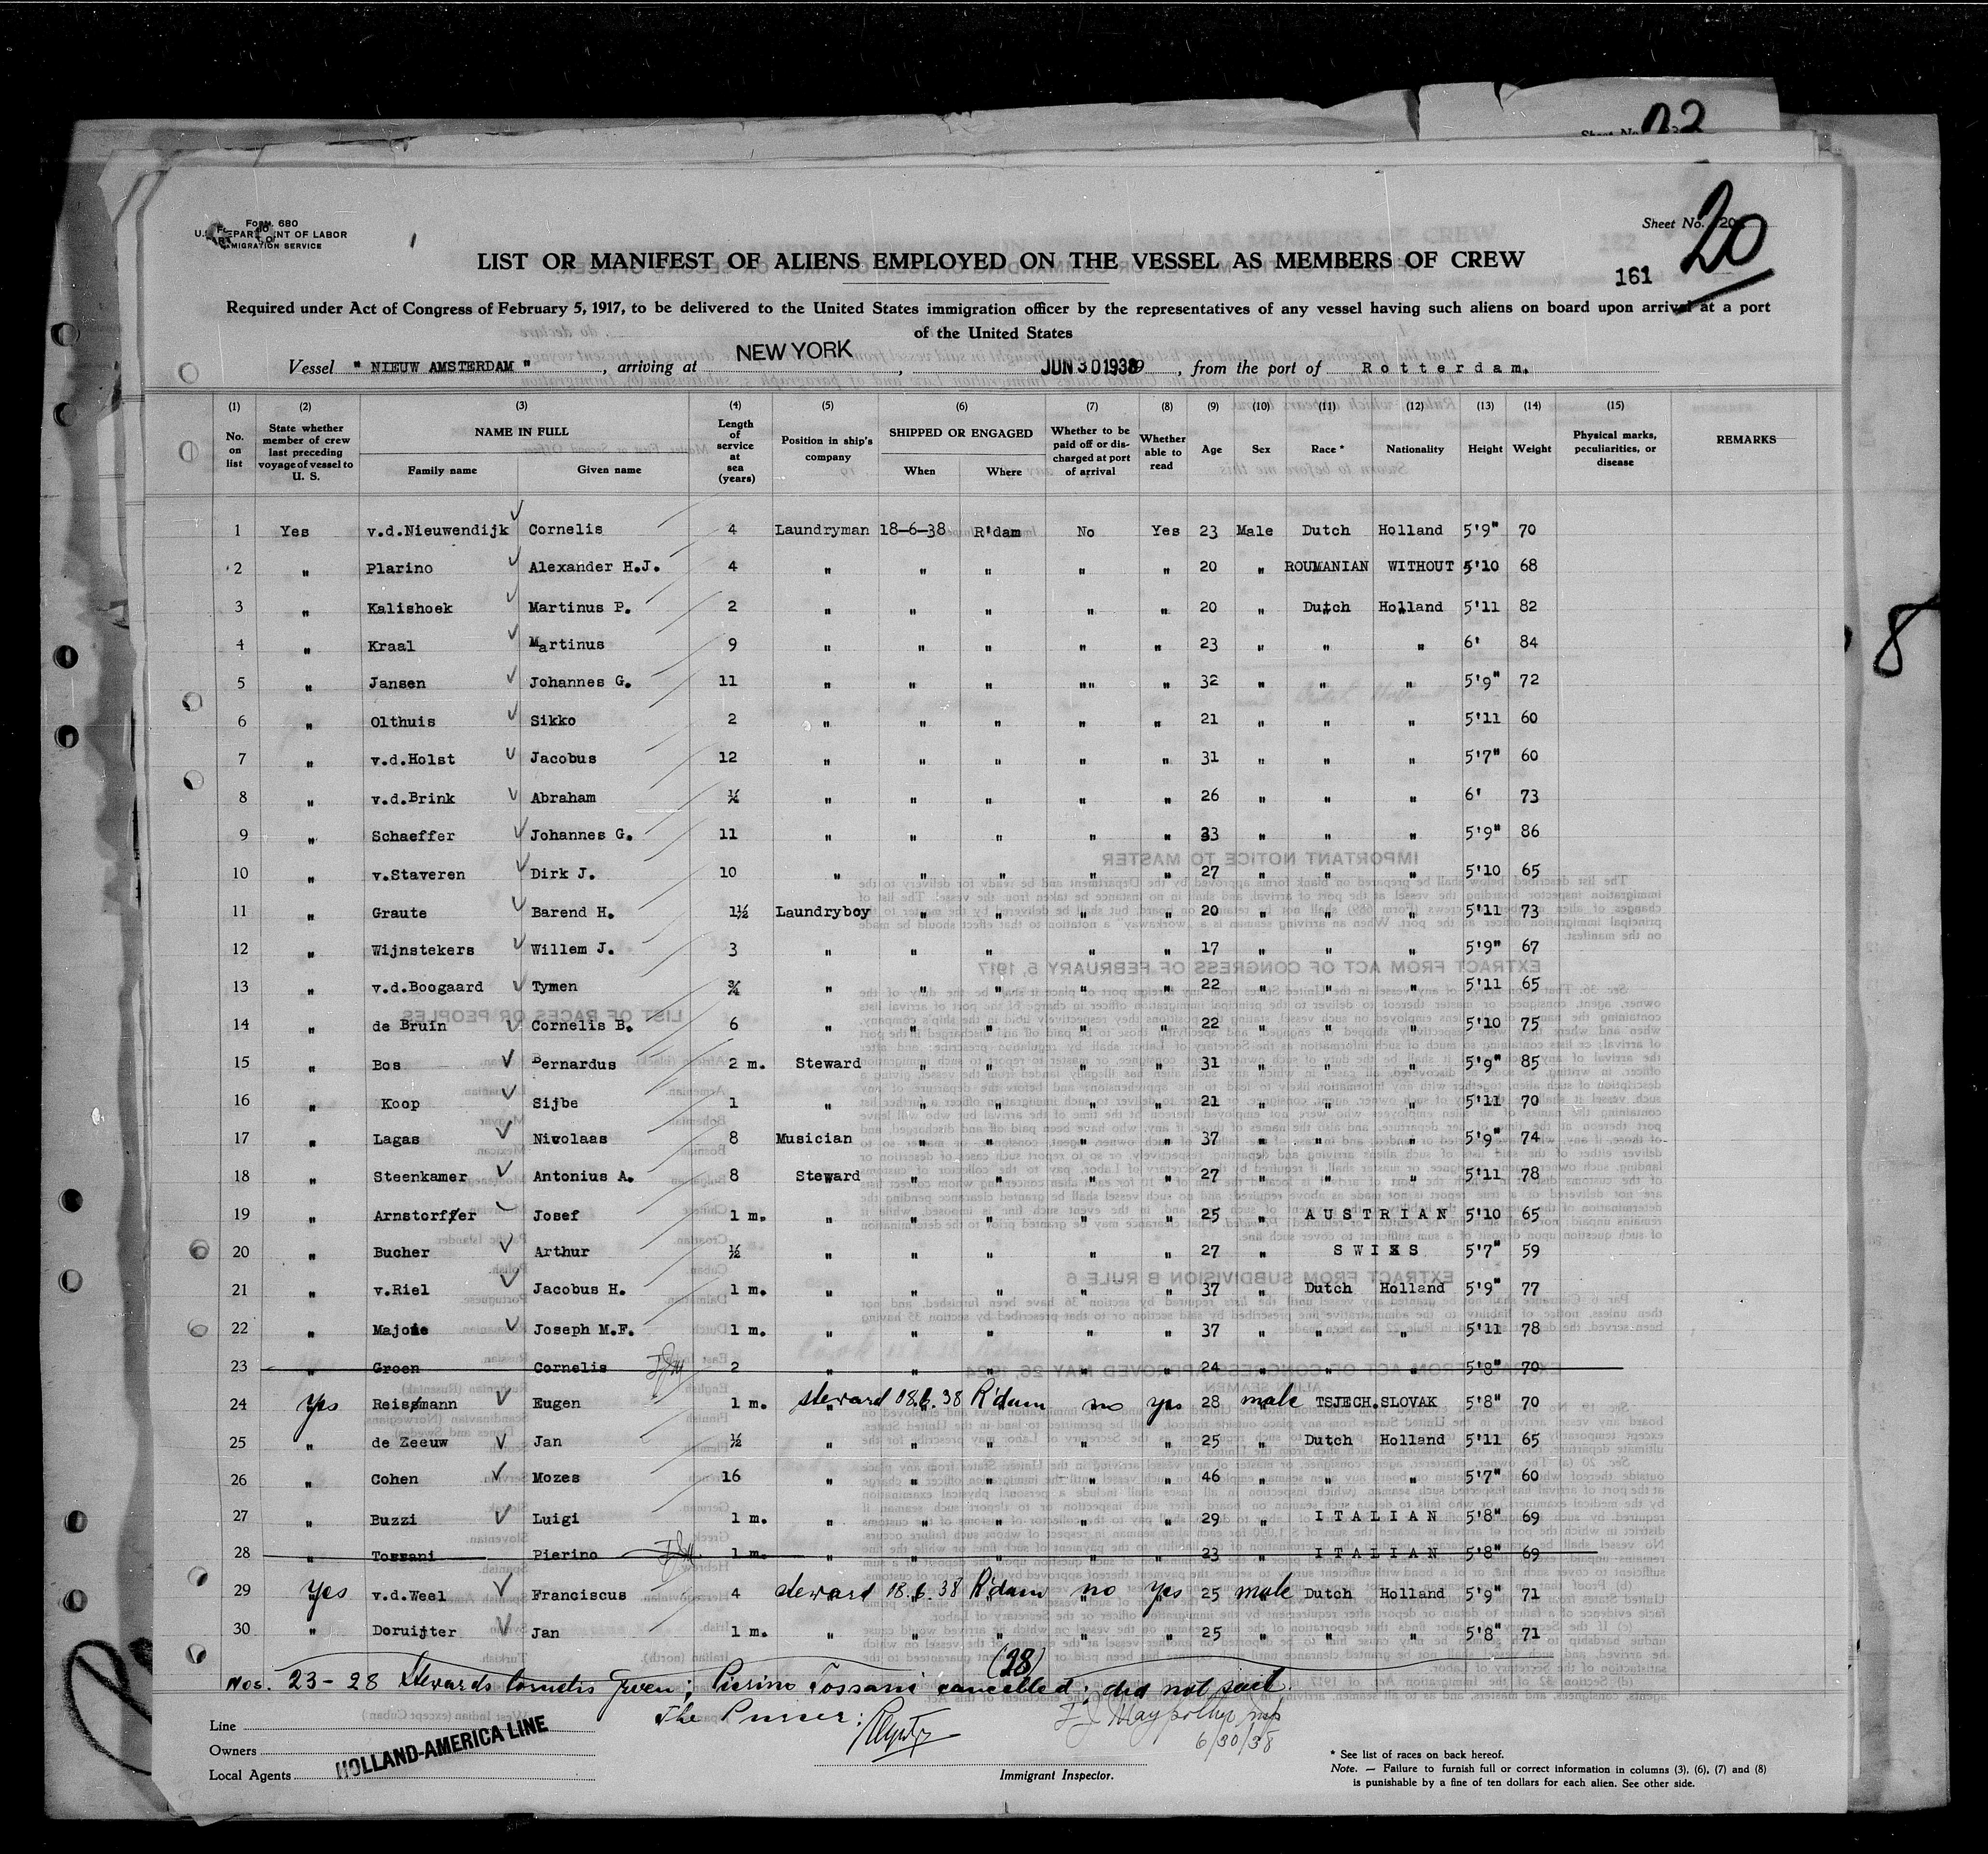 Sheet No. 23
Form 680
U.S. DEPARTMENT OF LABOR
IMMIGRATION SERVICE
Sheet No. 20
20
161
LIST OR MANIFEST OF ALIENS EMPLOYED ON THE VESSEL AS MEMBERS OF CREW
Required under Act of Congress of February 5, 1917, to be delivered to the United States immigration officer by the representatives of any vessel having such aliens on board upon arrival at a port
of the United States
Vessel " NIEUW AMSTERDAM ", arriving at NEW YORK, JUN 30 1938, from the port of Rotterdam.
(1) (2) (3) (4) (5) (6) (7) (8) (9) (10) (11) (12) (13) (14) (15)
No. on list State whether member of crew last preceding voyage of vessel to U. S. NAME IN FULL Family name Given name Length of service at sea (years) Position in ship's company SHIPPED OR ENGAGED When Where Whether to be paid off or discharged at port of arrival Whether able to read Age Sex Race * Nationality Height Weight Physical marks, peculiarities, or disease REMARKS
1 Yes v.d.Nieuwendijk Cornelis 4 Laundryman 18-6-38 R'dam No Yes 23 Male Dutch Holland 5'9" 70
2 " Plarino Alexander H.J. 4 " " " " " 20 " ROUMANIAN WITHOUT 5'10 68
3 " Kalishoek Martinus P. 2 " " " " " 20 " Dutch Holland 5'11 82
4 " Kraal Martinus 9 " " " " " 23 " " " 6' 84
5 " Jansen Johannes G. 11 " " " "" " 32 " " " 5'9" 72
6 " Olthuis Sikko 2 " " " " " 21 " " " 5'11 60
7 " v.d.Holst Jacobus 12 " " " " " 31 " " " 5'7" 60
8 " v.d.Brink Abraham ¼ " " " " " 26 " " " 6' 73
9 " Schaeffer Johannes G. 11 " " " " " 33 " " " 5'9" 86
10 " v.Staveren Dirk J. 10 " " " " " 27 " " " 5'10 65
11 " Graute Barend H. 1½ Laundryboy " " " " 20 " " " 5'11 73
12 " Wijnstekers Willem J. 3 " " " " " 17 " " " 5'9" 67
13 " v.d.Boogaard Tymen ¾ " " " " " 22 " " " 5'11 65
14 " de Bruin Cornelis B. 6 " " " " " 22 " " " 5'10 75
15 " Bos Bernardus 2 m. Steward " " " " 31 " " " 5'9" 85
16 " Koop Sijbe 1 " " " " " 21 " " " 5'11 70
17 " Lagas Nicolaas 8 Musician " " " " 37 " " " 5'9" 74
18 " Steenkamer Antonius A. 8 Steward " " " " 27 " " " 5'11 78
19 " Arnstorffer Josef 1 m. " " " " " 25 " AUSTRIAN 5'10 65
20 " Bucher Arthur ½ " " " " " 27 " SWISS 5'7" 59
21 " v.Riel Jacobus H. 1 m. " " " " " 37 " Dutch Holland 5'9" 77
22 " Majoie Joseph M.F. 1 m. " " " " " 37 " " " 5'11 78
23 " Groen Cornelis 2 " " " " " 24 " " " 5'8" 70
24 yes Reissmann Eugen 1 m. steward 18.6.38 R'dam no yes 28 male TSJECH.SLOVAK 5'8" 70
25 " de Zeeuw Jan ½ " " " " " 25 " Dutch Holland 5'11 65
26 " Cohen Mozes 16 " " " " " 46 " " " 5'7" 60
27 " Buzzi Luigi 1 m. " " " " " 29 " ITALIAN 5'8" 69
28 " Tossani Pierino 1 m. " " " " " 23 " ITALIAN 5'8" 69
29 Yes v.d.Weel Franciscus 4 steward 18.6.38 R'dam no yes 25 male Dutch Holland 5'9" 71
30 " Doruijter Jan 1 m. " " " " " 25 " " " 5'8" 71
(28)
Nos. 23-28 Stewards Cornelis Groen; Pierino Tossani cancelled; did not sail.
The Purser:
6/30/38
8
Line
Owners
Local Agents
HOLLAND-AMERICA LINE
Immigrant Inspector.
* See list of races on back hereof.
Note. — Failure to furnish full or correct information in columns (3), (6), (7) and (8)
is punishable by a fine of ten dollars for each alien. See other side.